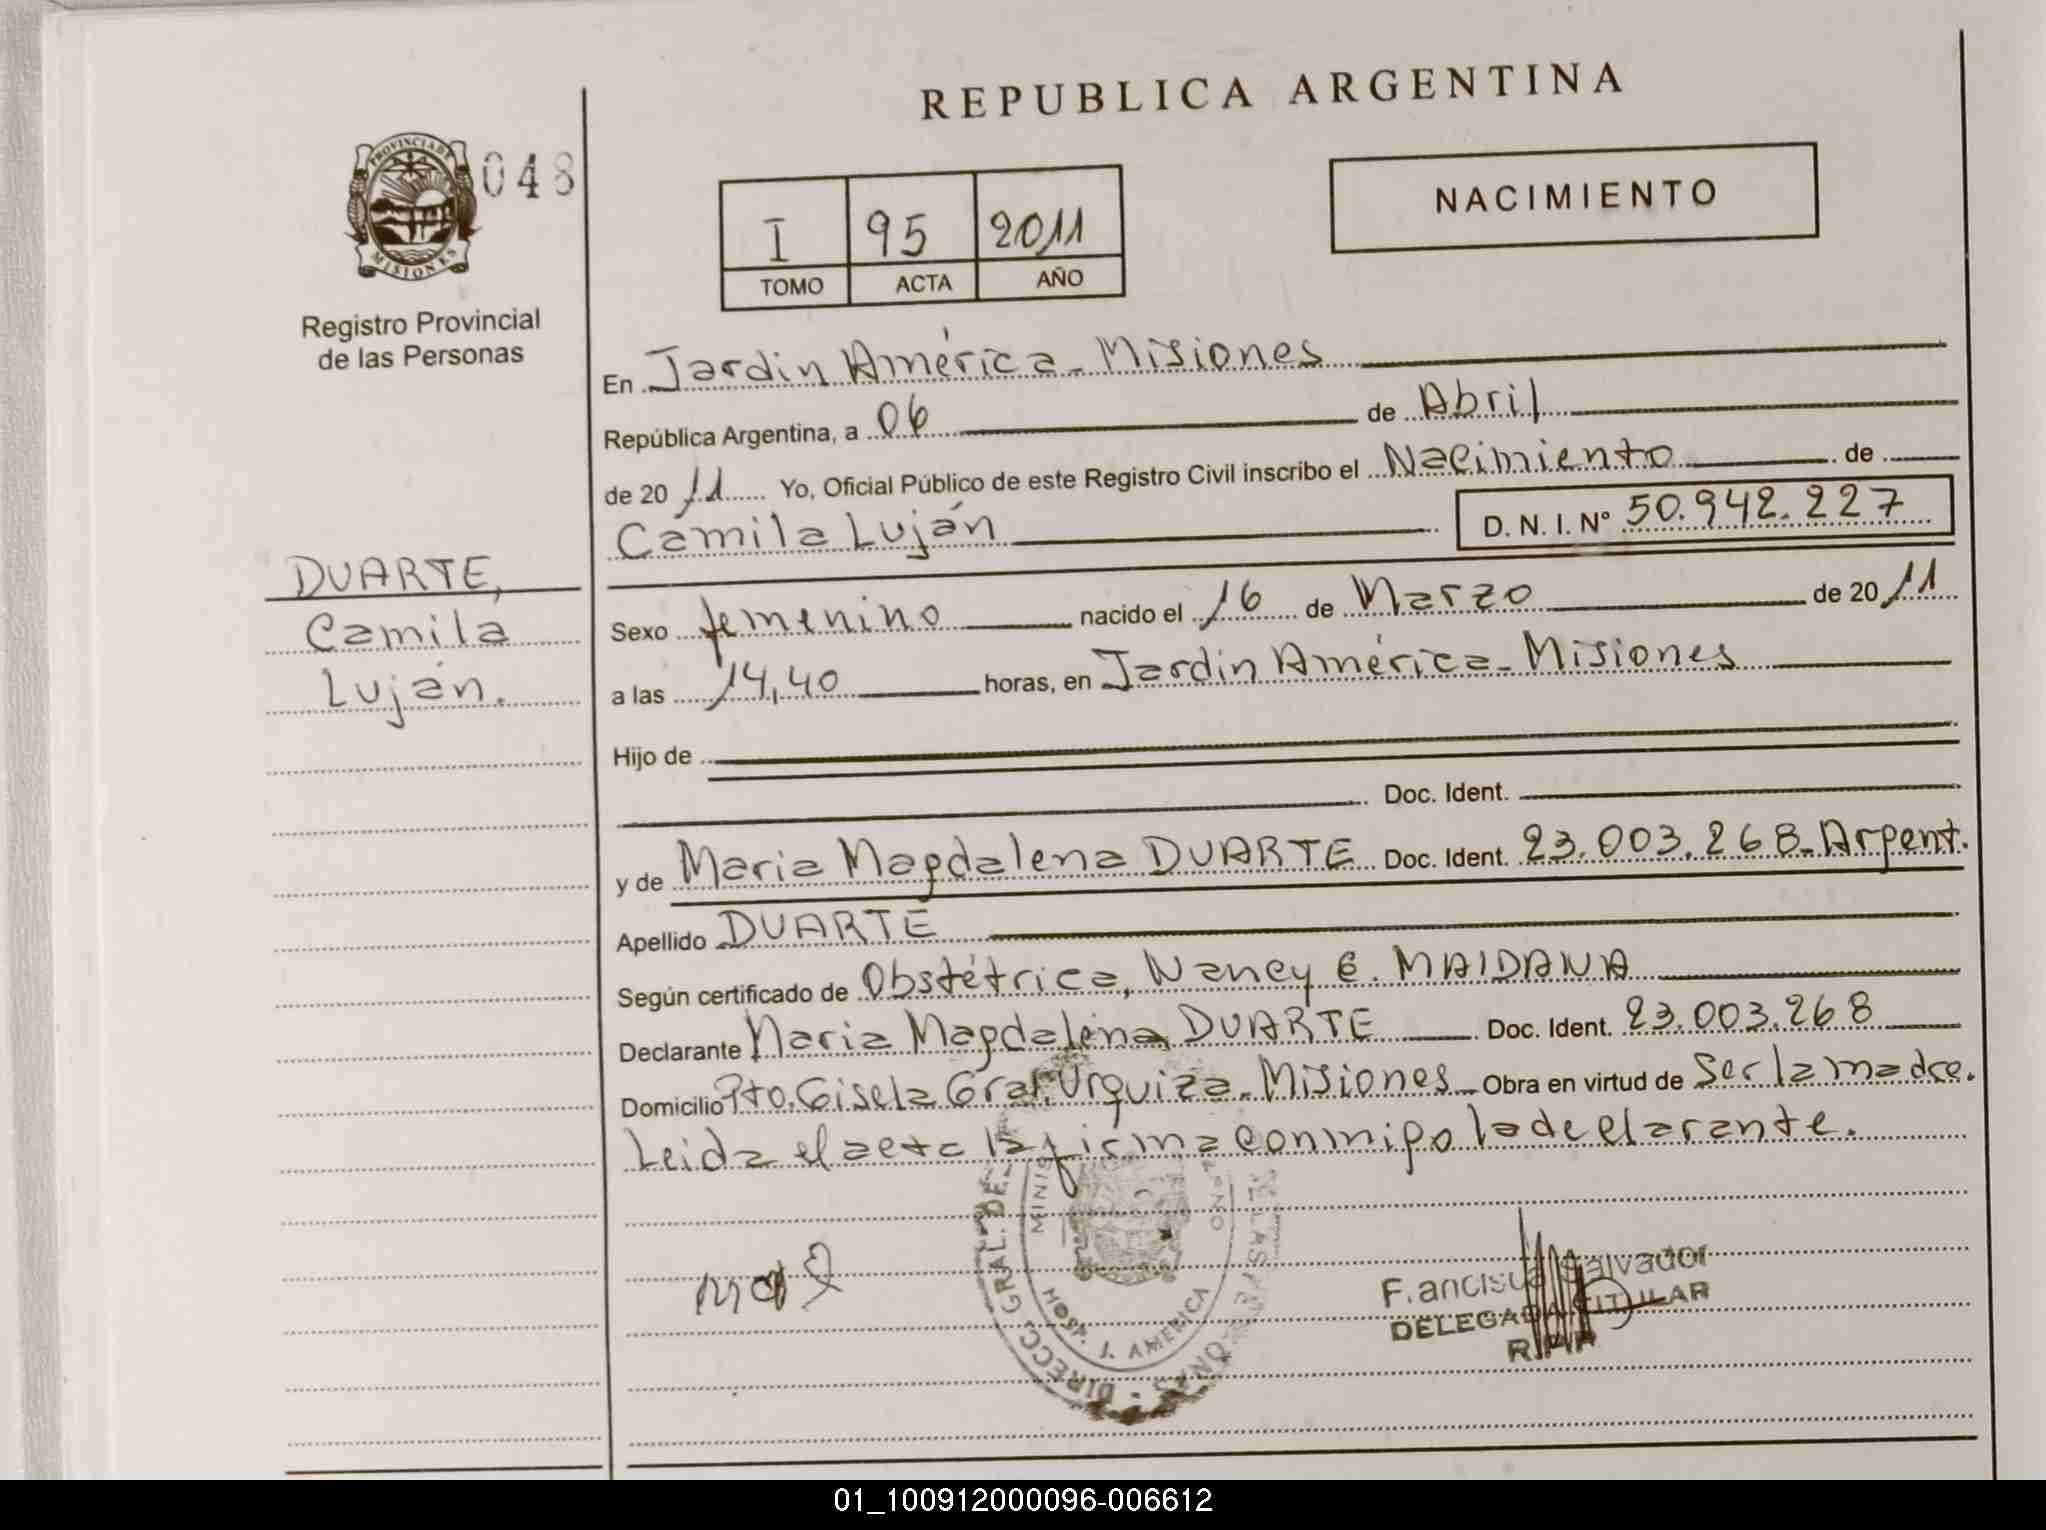 REPUBLICA ARGENTINA
PROVINCIA DE
MISIONES
048
Registro Provincial
de las Personas
I 95 2011
TOMO ACTA AÑO
NACIMIENTO
En Jardin América - Misiones
República Argentina, a 06 de Abril
de 20 11 Yo, Oficial Público de este Registro Civil inscribo el Nacimiento de
Camila Luján D. N. I. Nº 50.942.227
DUARTE,
Camila
Luján.
Sexo femenino nacido el 16 de Marzo de 20 11
a las 14,40 horas, en Jardin América - Misiones
Hijo de
Doc. Ident.
y de Maria Magdalena DUARTE Doc. Ident. 23.003.268 - Argent.
Apellido DUARTE
Según certificado de Obstétrica, Nancy E. MAIDANA
Declarante Maria Magdalena DUARTE Doc. Ident. 23.003.268
Domicilio Pto. Gisela Gral. Urquiza - Misiones Obra en virtud de Ser la madre.
Leida el acta la firma conmigo la declarante.
DIRECC. GRAL. DE
HOSP. J. AMERICA
Salvador
DELEGADA TITULAR
01_100912000096-006612